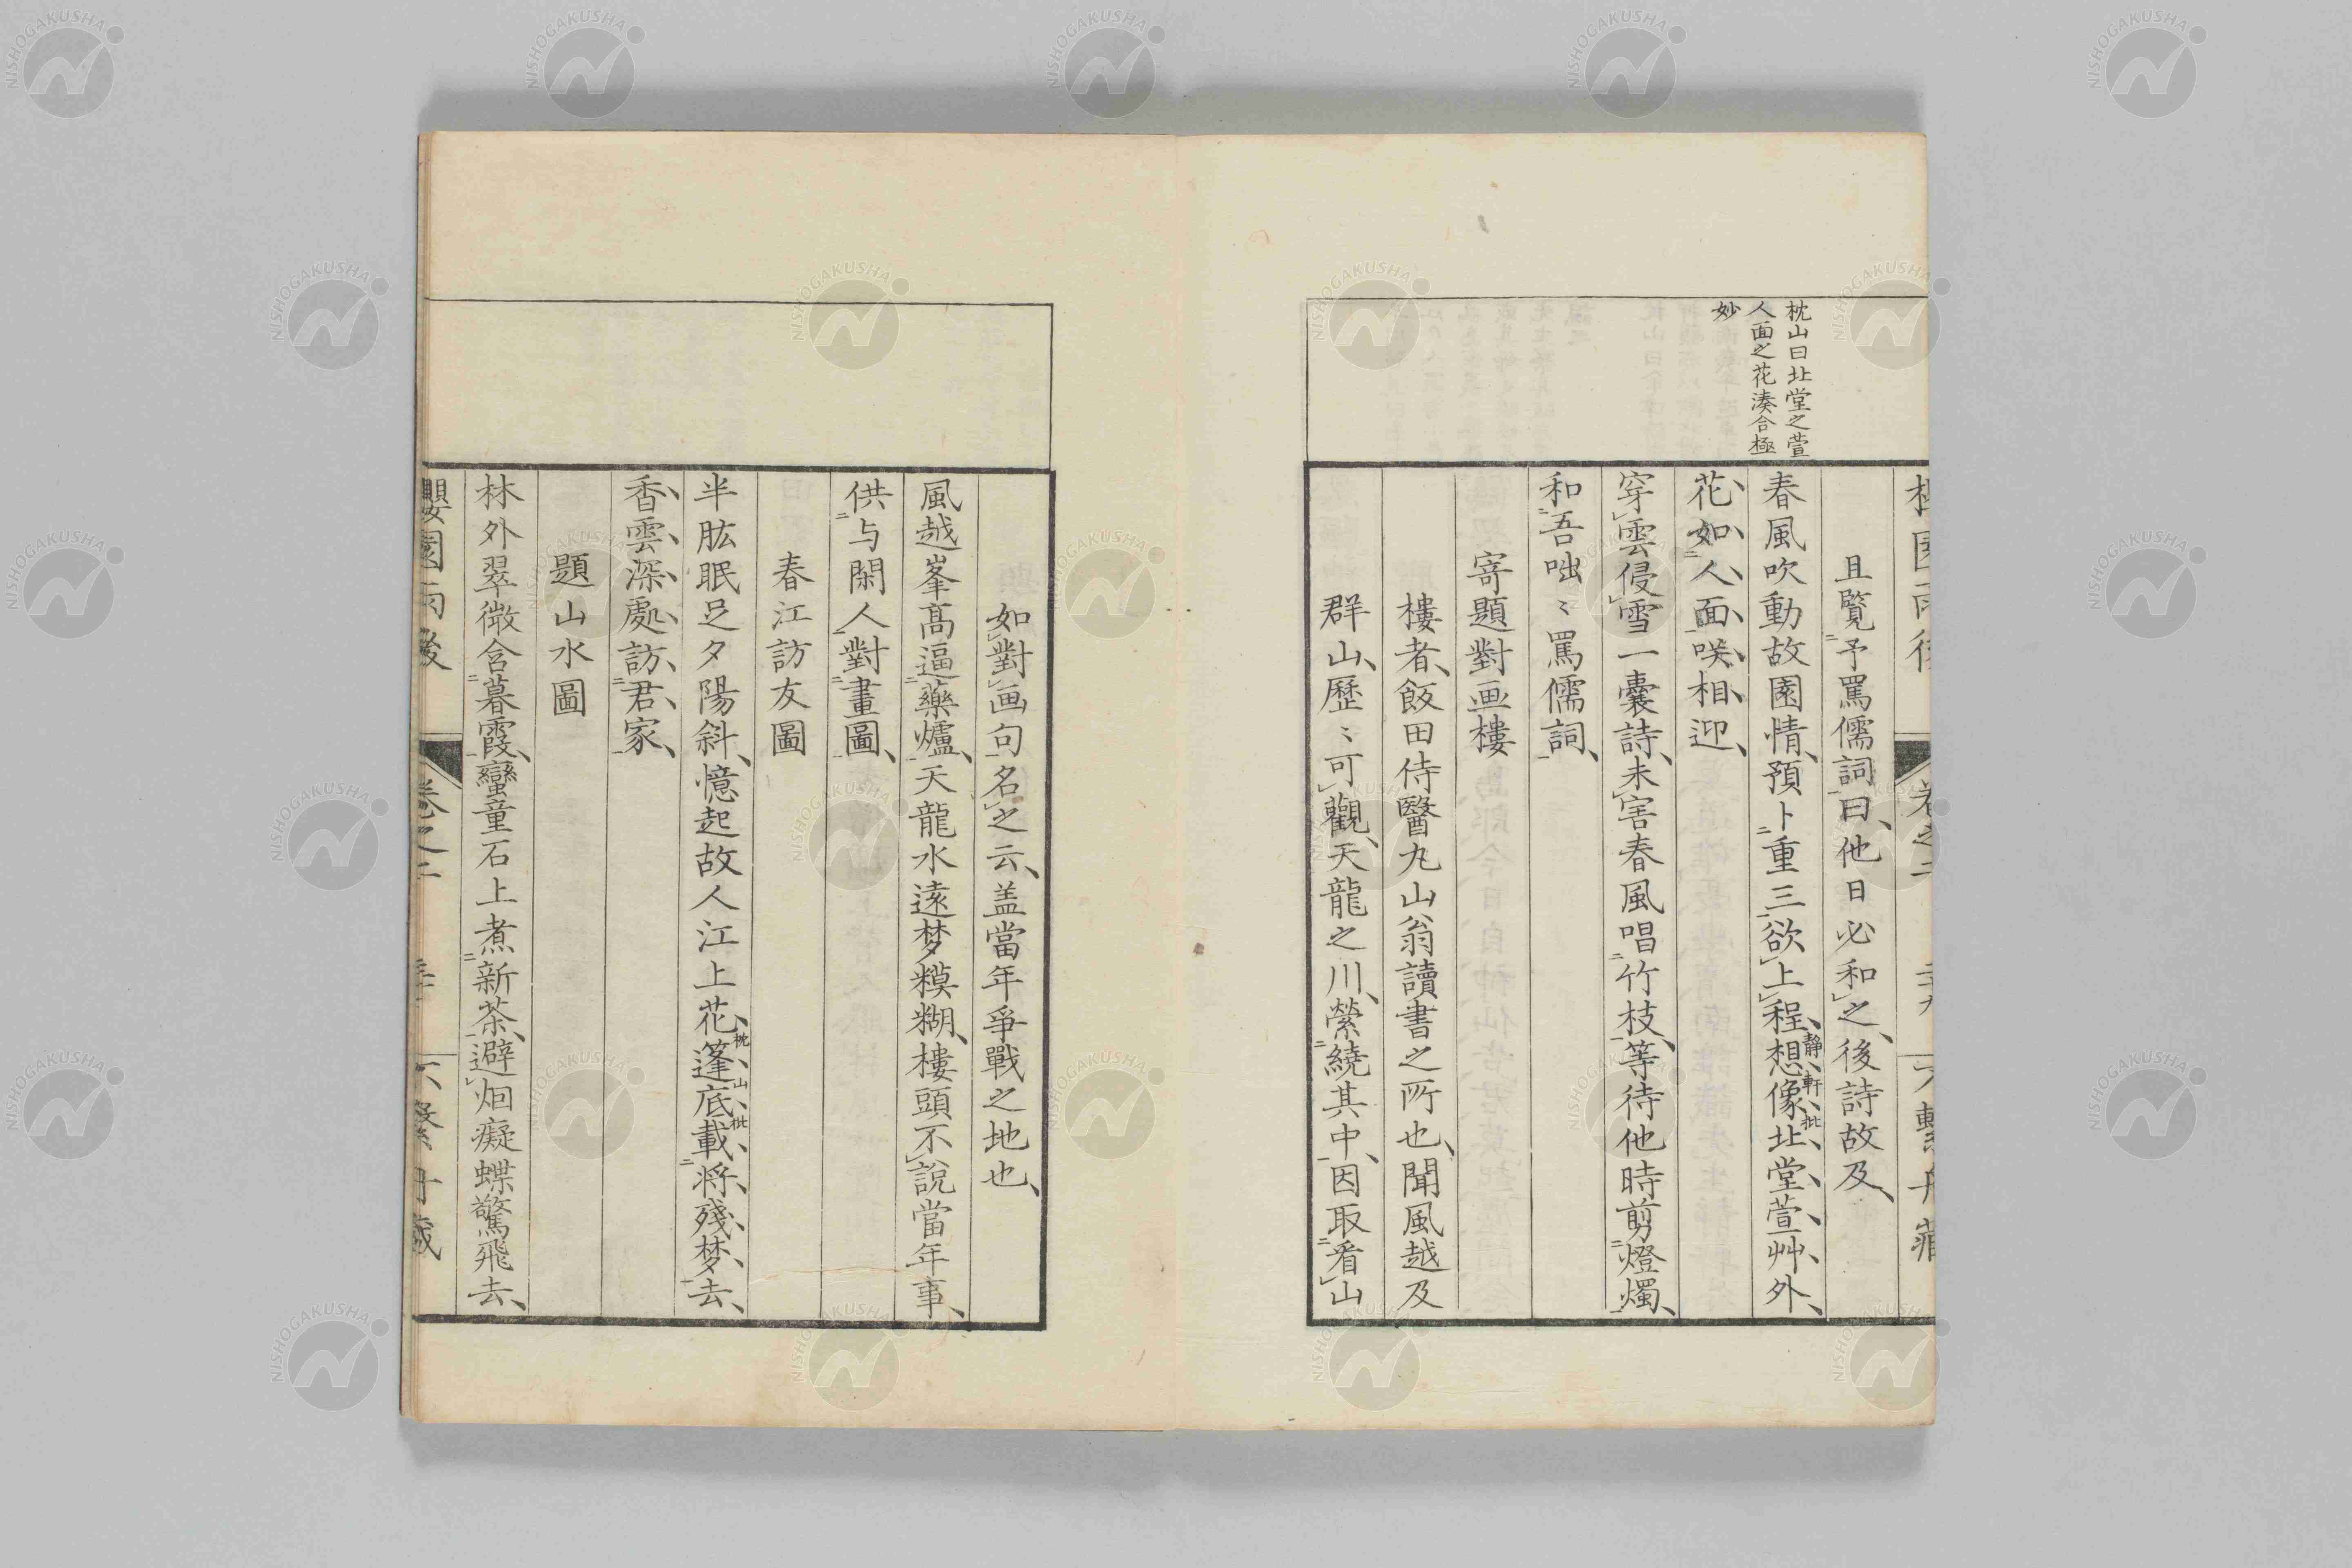 枕山曰北堂之萱
人面之花湊合極
妙
且覽予罵儒詞曰他日必和之後詩故及
春風吹動故園情預卜重三欲上程想像北堂萱艸外
靜軒批
花如人面咲相迎
穿雲侵雪一囊詩未害春風唱竹枝等待他時剪燈燭
和吾咄〻罵儒詞
寄題對画樓
樓者飯田侍醫丸山翁讀書之所也聞風越及
群山歷〻可觀天龍之川縈繞其中因取看山
如對画句名之云盖當年爭戰之地也
風越峯髙逼藥爐天龍水遠梦糢糊樓頭不說當年事
供与閑人對畫圖
春江訪友圖
半肱眠足夕陽斜憶起故人江上花篷底載將殘梦去
枕山批
香雲深處訪君家
題山水圖
林外翠微含暮霞蠻童石上煮新茶避烟癡蝶驚飛去
櫻園雨後
卷之二
NISHOGAKUSHA